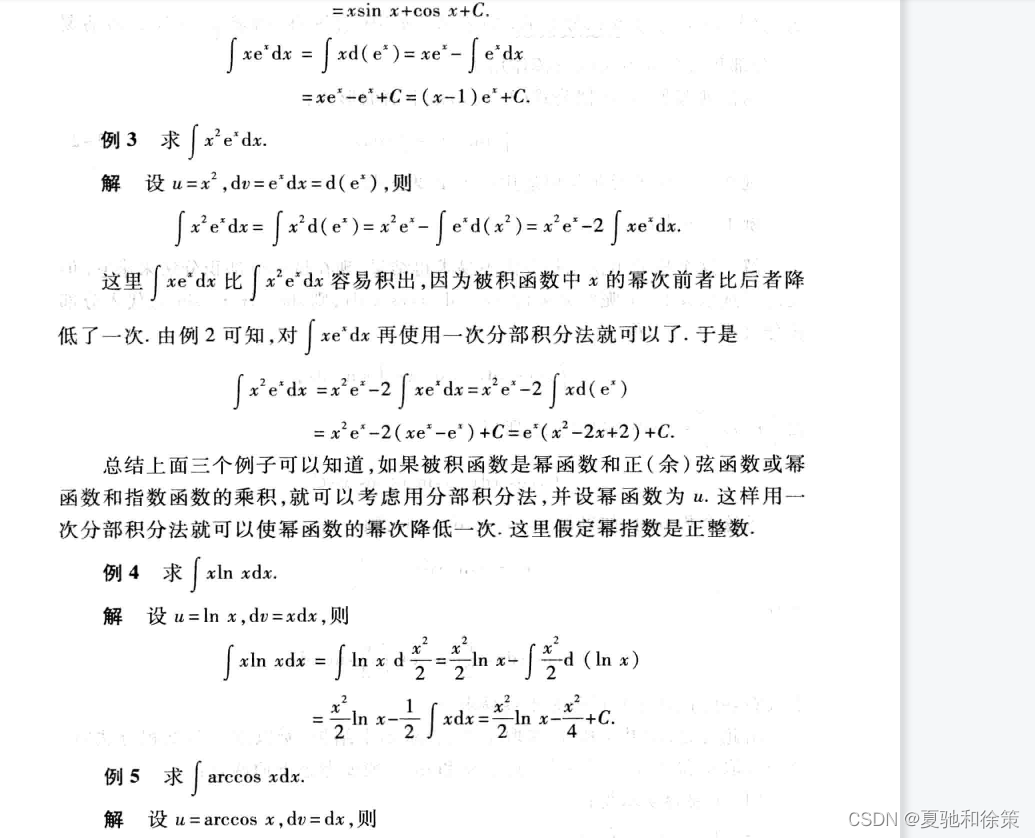 =xsin x+cos x+C.
∫xeˣdx = ∫xd(eˣ)= xeˣ-∫eˣdx
=xeˣ-eˣ+C=(x-1)eˣ+C.
例 3 求∫x²eˣdx.
解 设 u=x²,dv=eˣdx=d(eˣ),则
∫x²eˣdx= ∫x²d(eˣ)= x²eˣ-∫eˣd(x²)= x²eˣ-2∫xeˣdx.
这里∫xeˣdx 比∫x²eˣdx 容易积出,因为被积函数中 x 的幂次前者比后者降
低了一次. 由例 2 可知,对∫xeˣdx 再使用一次分部积分法就可以了. 于是
∫x²eˣdx =x²eˣ-2∫xeˣdx=x²eˣ-2∫xd(eˣ)
= x²eˣ-2(xeˣ-eˣ)+C=eˣ(x²-2x+2)+C.
总结上面三个例子可以知道,如果被积函数是幂函数和正(余)弦函数或幂
函数和指数函数的乘积,就可以考虑用分部积分法,并设幂函数为 u. 这样用一
次分部积分法就可以使幂函数的幂次降低一次. 这里假定幂指数是正整数.
例 4 求∫xln xdx.
解 设 u=ln x,dv=xdx,则
∫xln xdx = ∫ln x d x²/2= x²/2 ln x-∫x²/2 d (ln x)
= x²/2 ln x- 1/2 ∫xdx= x²/2 ln x- x²/4 +C.
例 5 求∫arccos xdx.
解 设 u=arccos x,dv=dx,则
CSDN @夏驰和徐策